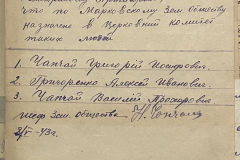 что по Марковскому Зем. Обществу
назначено в Церковний комитет
таких людей
1. Чапчай Григорій Йосифович.
2. Григоренко Алексей Иванович.
3. Чапчай Василий Прохорович
шеф зем. общества
2/V - 43г.